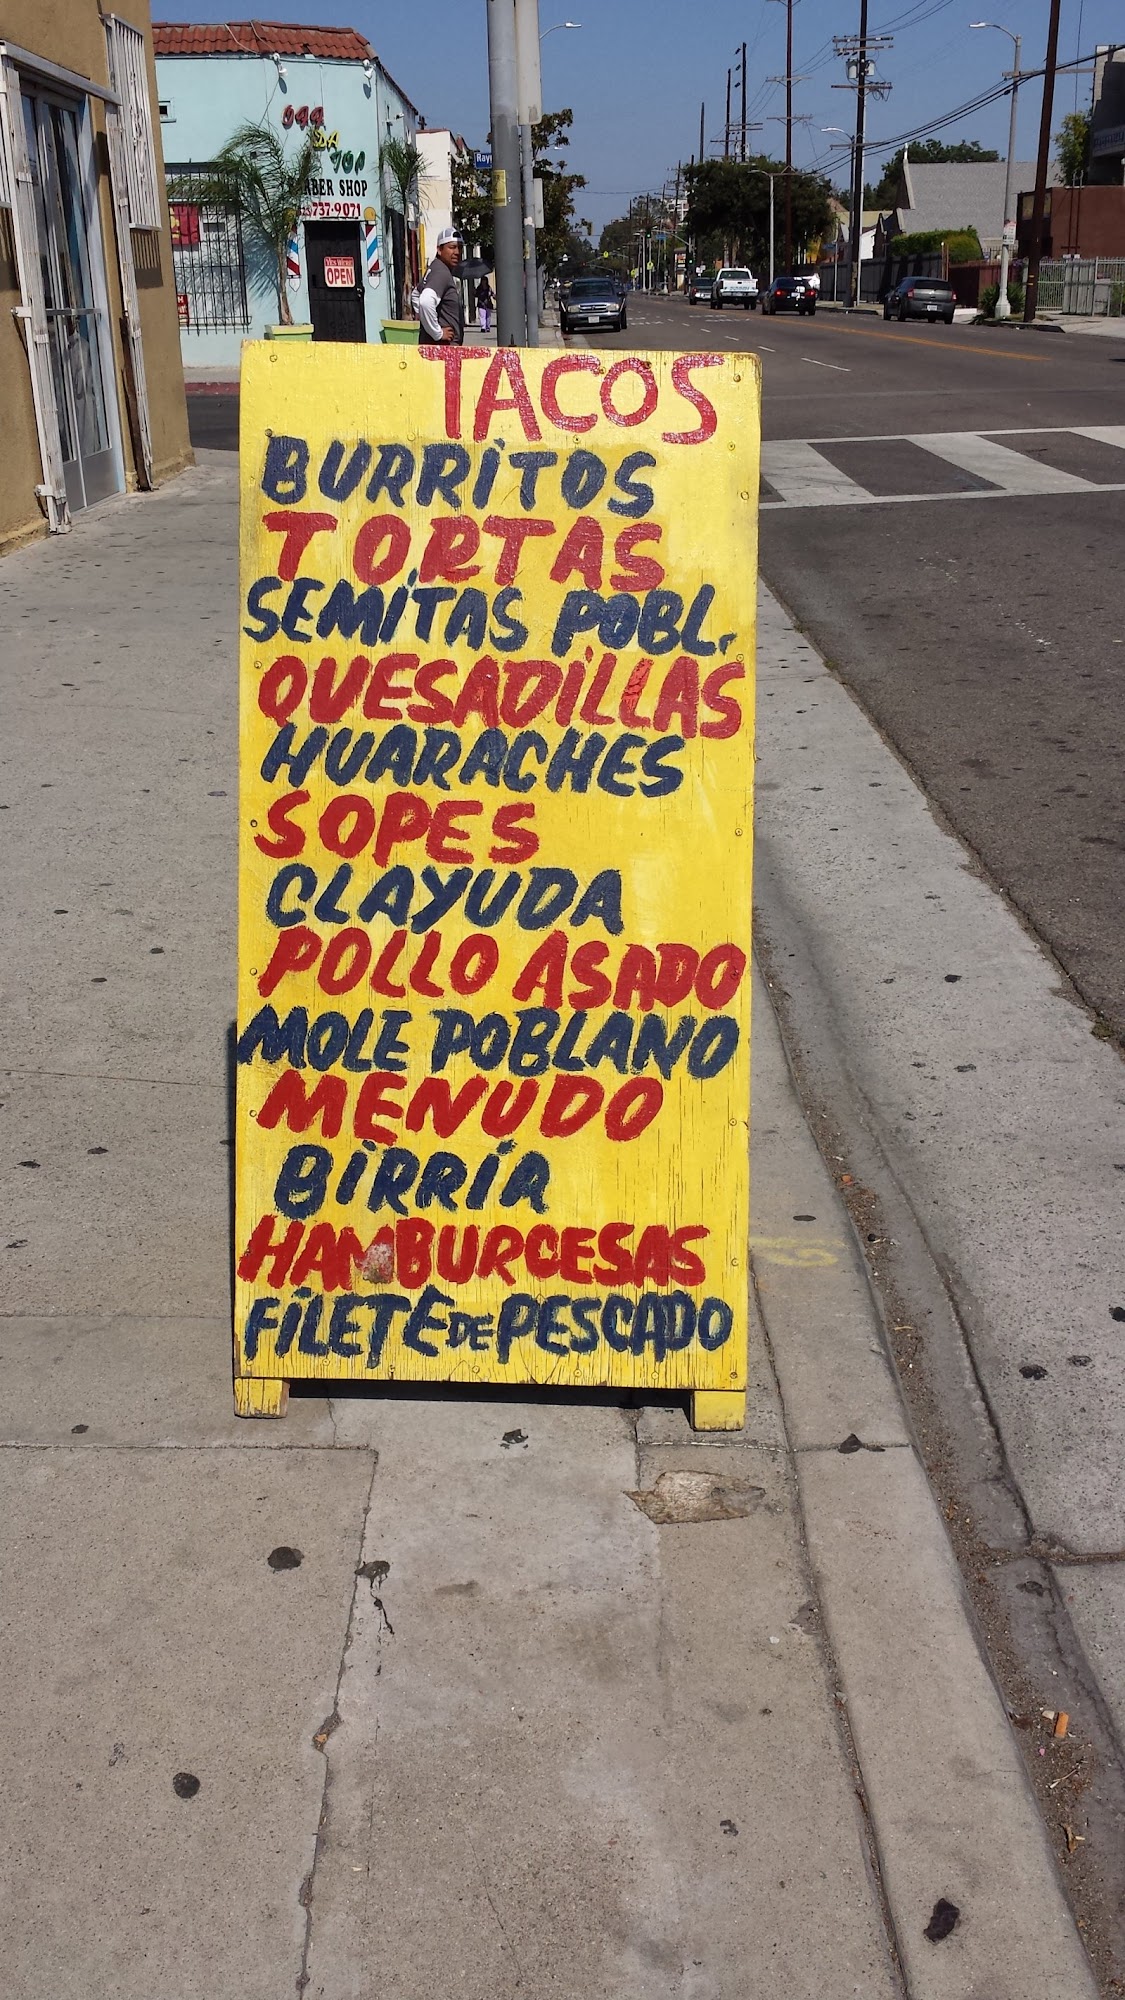 BARBER SHOP
737-9071
YES WE'RE
OPEN
TACOS
BURRITOS
TORTAS
SEMITAS POBL.
QUESADILLAS
HUARACHES
SOPES
CLAYUDA
POLLO ASADO
MOLE POBLANO
MENUDO
BIRRIA
HAMBURGESAS
FILETE DE PESCADO